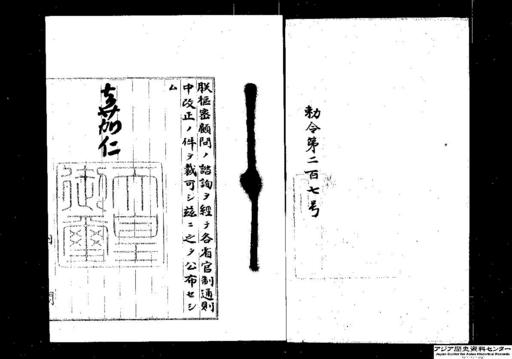 勅令第二百七号
朕枢密顧問ノ諮詢ヲ経テ各省官制通則
中改正ノ件ヲ裁可シ茲ニ之ヲ公布セシ
ム
嘉仁
天皇
御璽
アジア歴史資料センター
Japan Center for Asian Historical Records